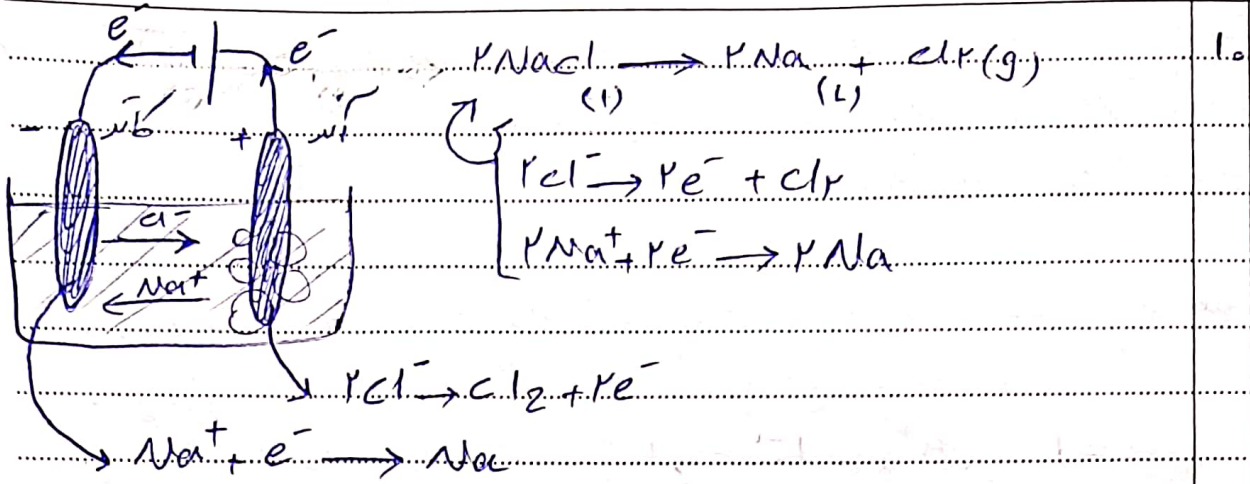 e⁻ e⁻ ۲NaCl → ۲Na + Cl۲(g) ۱۰
(l) (L)
- کاتد + آند
۲Cl⁻ → ۲e⁻ + Cl۲
Cl⁻
۲Na⁺ + ۲e⁻ → ۲Na
Na⁺
۲Cl⁻ → Cl2 + ۲e⁻
Na⁺ + e⁻ → Na